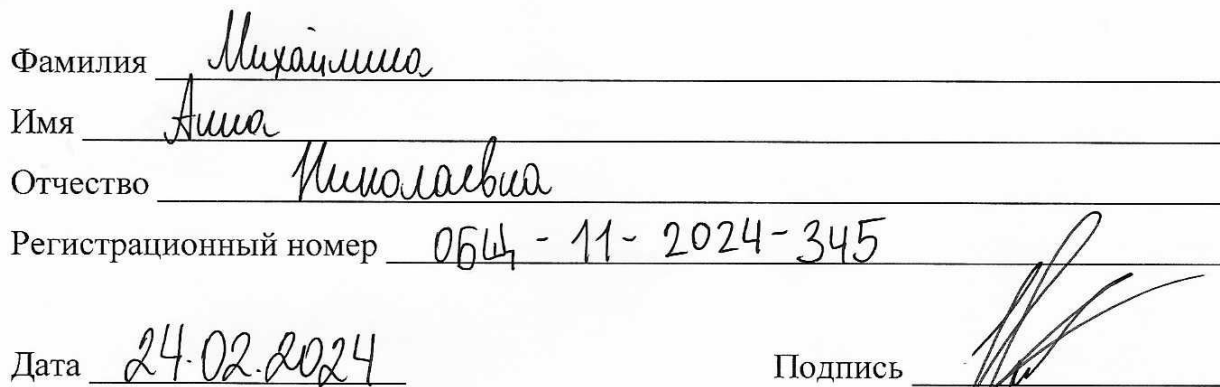 Фамилия Михайлина
Имя Анна
Отчество Николаевна
Регистрационный номер ОБЩ - 11 - 2024 - 345
Дата 24.02.2024 Подпись